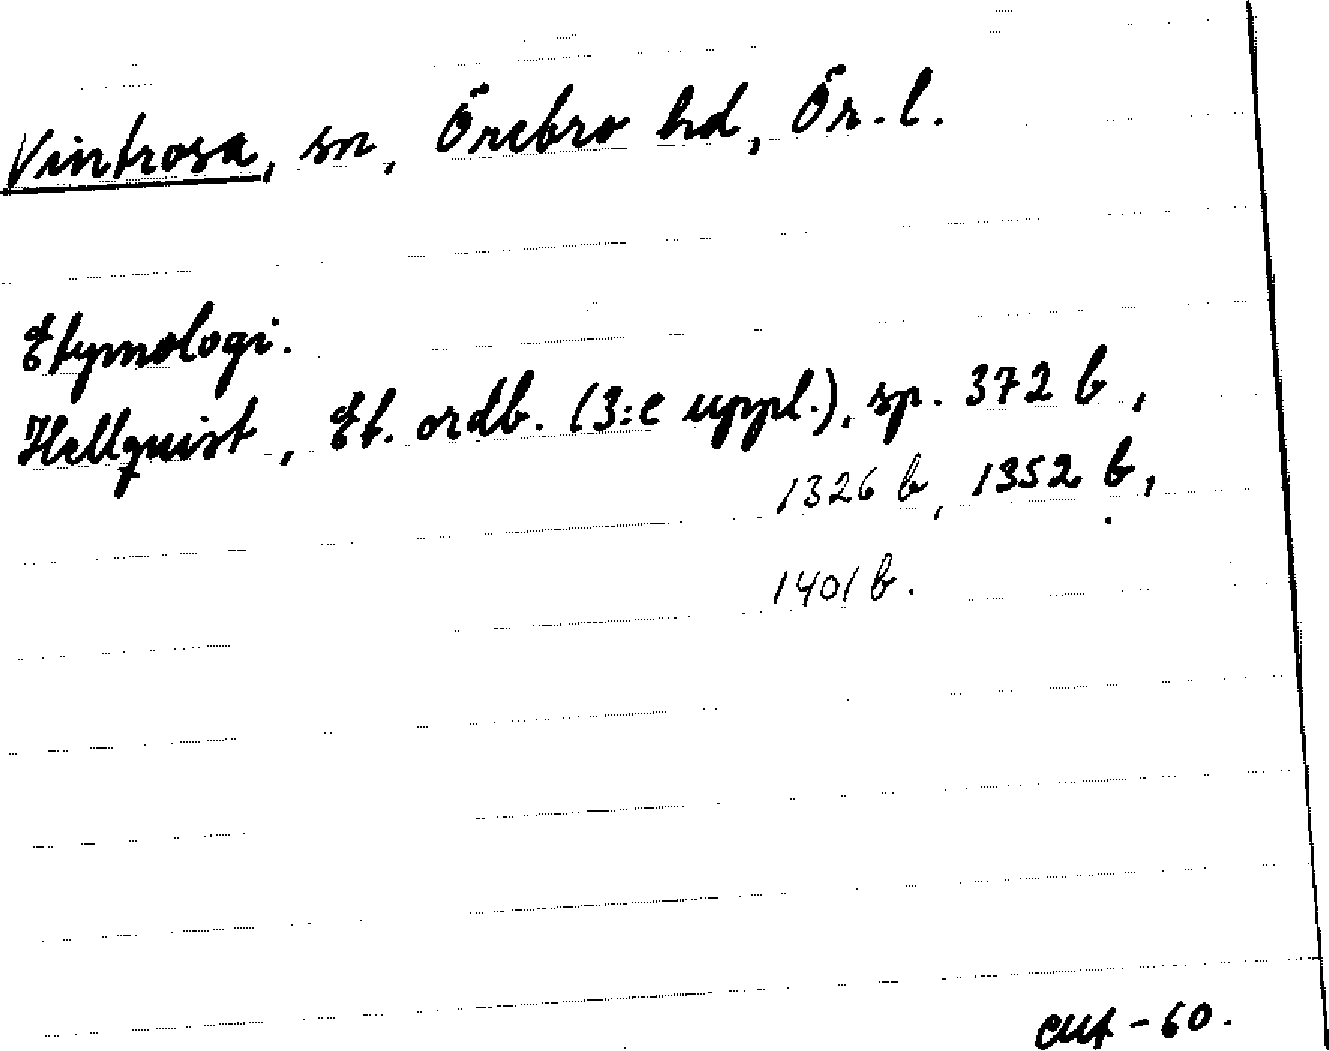 Vintrosa, sn, Örebro hd, Ör. l.
Etymologi.
Hellquist, Et. ordb. (3:e uppl.), sp. 372 b,
1326 b, 1352 b,
1401 b.
-60.